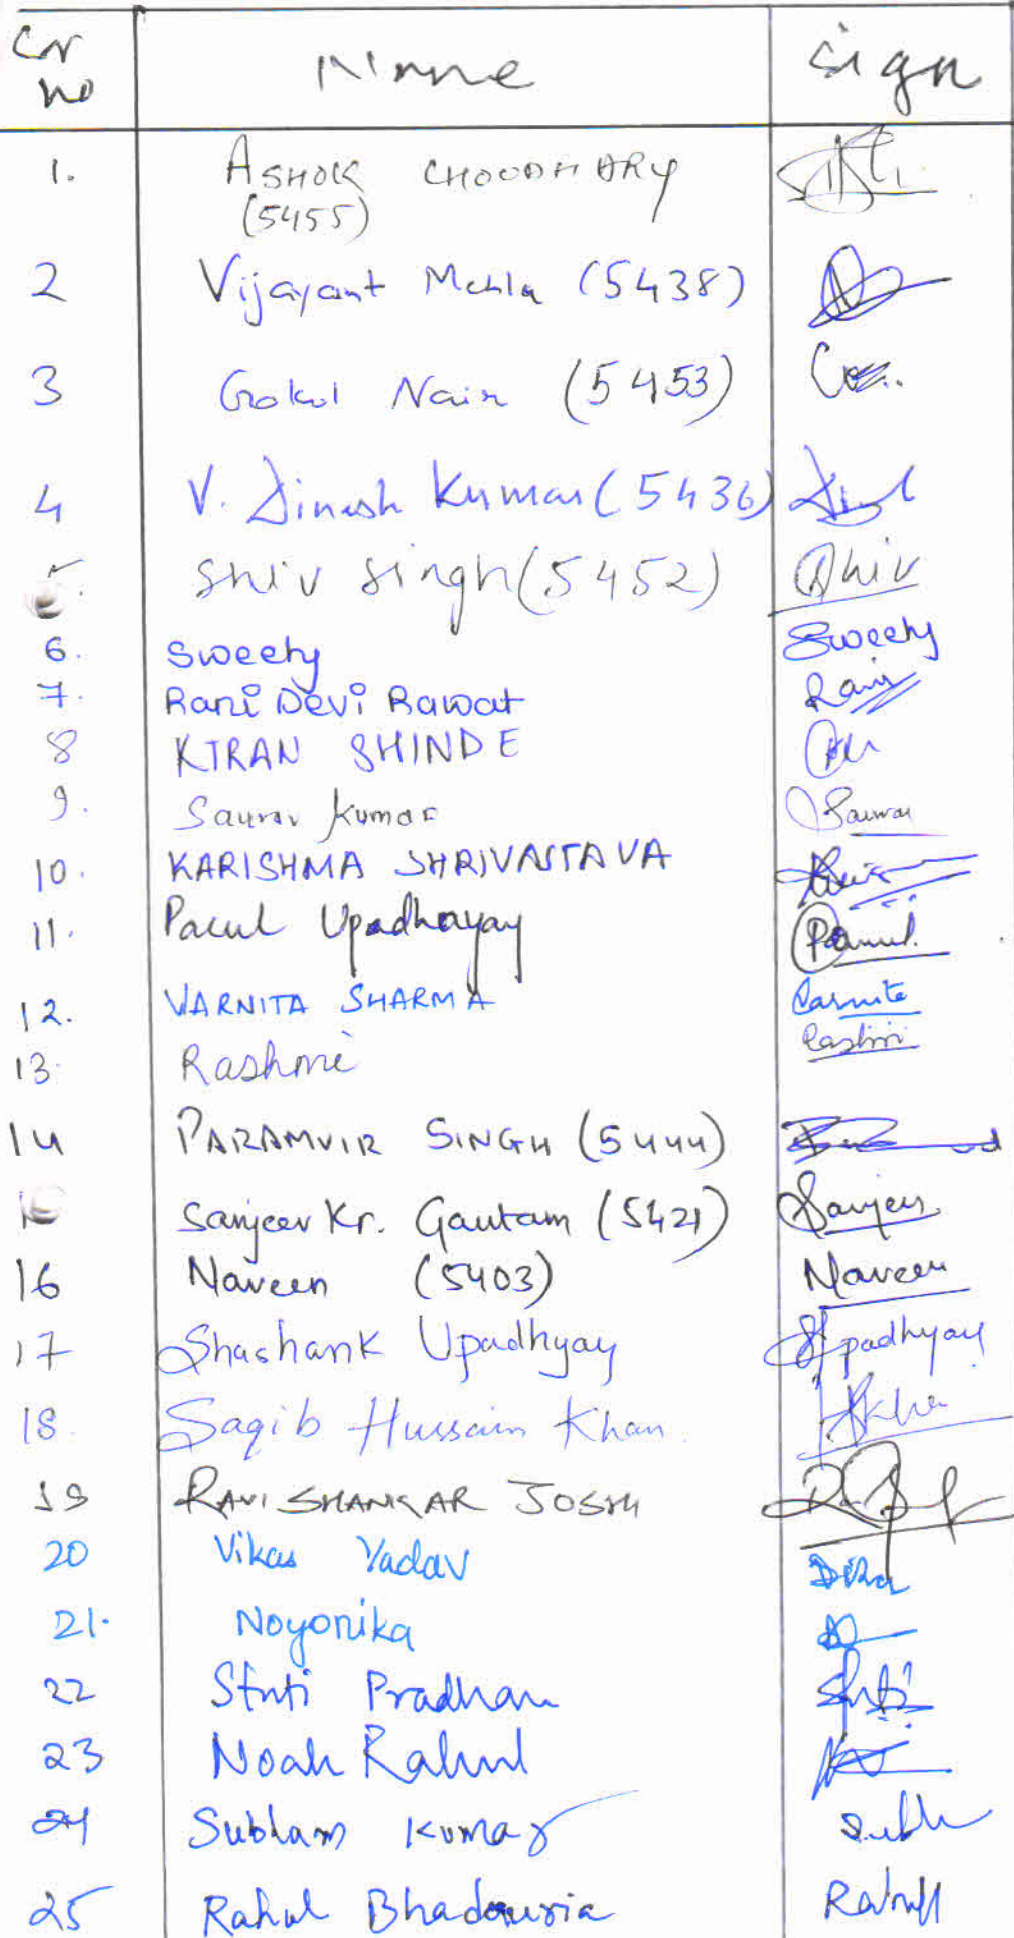 Sr no Name Sign
1. ASHOK CHOUDHARY
(5455)
2 Vijayant Mehla (5438)
3 Gokul Nair (5453)
4 V. Dinesh Kumar (5436)
5. Shiv Singh (5452) Shiv
6. Sweety Sweety
7. Rani Devi Rawat Rani
8 KIRAN SHINDE
9. Saurav Kumar Saurav
10. KARISHMA SHRIVASTAVA
11. Parul Upadhayay Parul
12. VARNITA SHARMA Varnita
13. Rashmi Rashmi
14 PARAMVIR SINGH (5444)
Sanjeev Kr. Gautam (5421) Sanjeev
16 Naveen (5403) Naveen
17 Shashank Upadhyay Upadhyay
18. Saqib Hussain Khan
19 RAVI SHANKAR JOSHI
20 Vikas Yadav
21. Noyonika
22 Stuti Pradhan Stuti
23 Noah Rahul
24 Subham Kumar Subh
25 Rahul Bhadouria Rahul